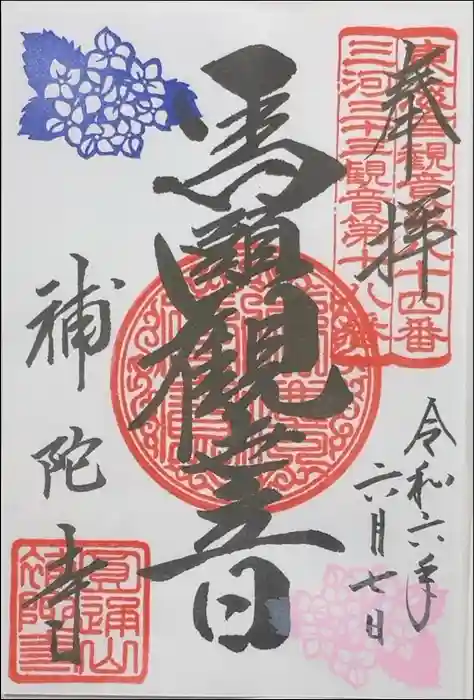 奉拝
十四番
三河三十三観音第十八番
令和六年
六月七日
馬頭觀世音
補陀寺
圓通山
補陀寺